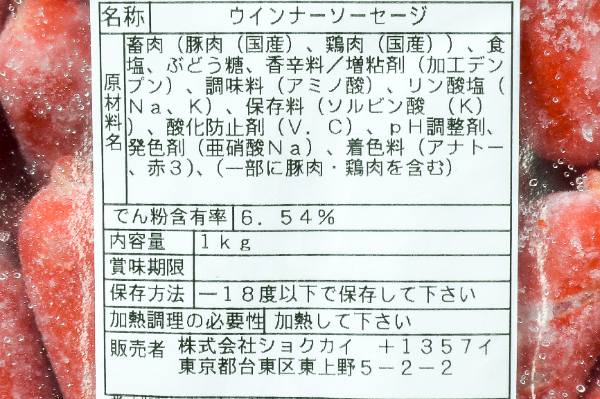 名称 ウインナーソーセージ
原材料名
畜肉（豚肉（国産）、鶏肉（国産））、食
塩、ぶどう糖、香辛料／増粘剤（加工デン
プン）、調味料（アミノ酸）、リン酸塩（
Ｎａ、Ｋ）、保存料（ソルビン酸（Ｋ）
）、酸化防止剤（Ｖ．Ｃ）、ｐＨ調整剤、
発色剤（亜硝酸Ｎａ）、着色料（アナトー
、赤３）、（一部に豚肉・鶏肉を含む）
でん粉含有率 ６．５４％
内容量 １ｋｇ
賞味期限
保存方法 －１８度以下で保存して下さい
加熱調理の必要性 加熱して下さい
販売者 株式会社ショクカイ ＋１３５７イ
東京都台東区東上野５－２－２